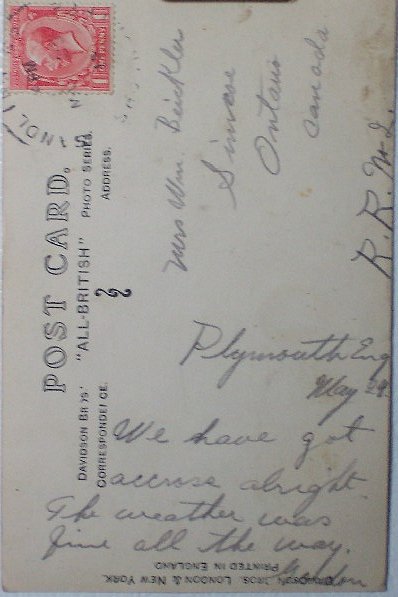 POST CARD.
DAVIDSON BROS' "ALL-BRITISH" PHOTO SERIES.
CORRESPONDENCE. ADDRESS.
Mrs Wm. Beickler
Simcoe
Ontario
Canada
R. R. No 2.
Plymouth Eng
May 29
We have got
accrose alright.
The weather was
fine all the way.
BROS. LONDON & NEW YORK.
PRINTED IN ENGLAND